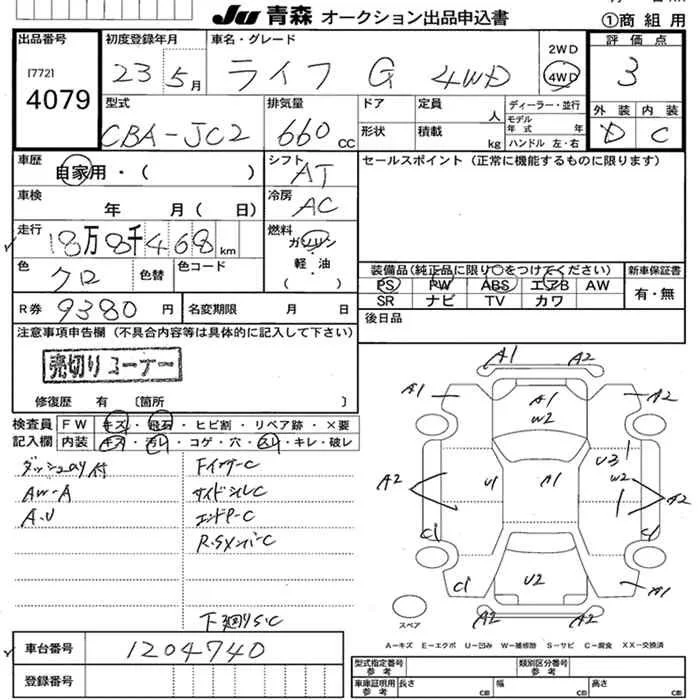 JU 青森 オークション出品申込書
①商組用
出品番号
[772]
4079
初度登録年月
23 5月
車名・グレード
ライフ G 4WD
2WD
4WD
評価点
3
型式
CBA-JC2
排気量
660 CC
ドア
定員
人
ディーラー・並行
モデル
年式 年
形状
積載
kg
ハンドル 左・右
外装
内装
D
C
車歴
自家用・( )
シフト
AT
セールスポイント(正常に機能するものに限ります)
車検
年 月( 日)
冷房
AC
走行
18万8千468km
燃料
ガソリン
・
軽・油
・
( )
色
クロ
色替
色コード
装備品(純正品に限り○をつけてください)
新車保証書
PS PW ABS エアB AW
有・無
SR ナビ TV カワ
R券
9380円
名変期限 月 日
後日品
注意事項申告欄(不具合内容等は具体的に記入して下さい)
売切りコーナー
修復歴 有 〔箇所 〕
検査員
記入欄
FW キズ・飛石・ヒビ割・リペア跡・×要
内装 キズ・汚レ・コゲ・穴・スレ・キレ・破レ
ダッシュのり付
AW-A
A.U
FインナーC
サイドシルC
エンドP-C
R.SメンバーC
下廻りS.C
A1
A2
A1
A1
W2
A2
A2
U1
A1
U3
W2
A2
C1
C1
C1
U2
A1
A2
A2
スペア
A-キズ E-エクボ U-凹み W-補修跡 S-サビ C-腐食 XX-交換済
車台番号
1204740
登録番号
型式指定番号
参考
類別区分番号
参考
車庫証明用
参考
長さ cm
幅 cm
高さ cm